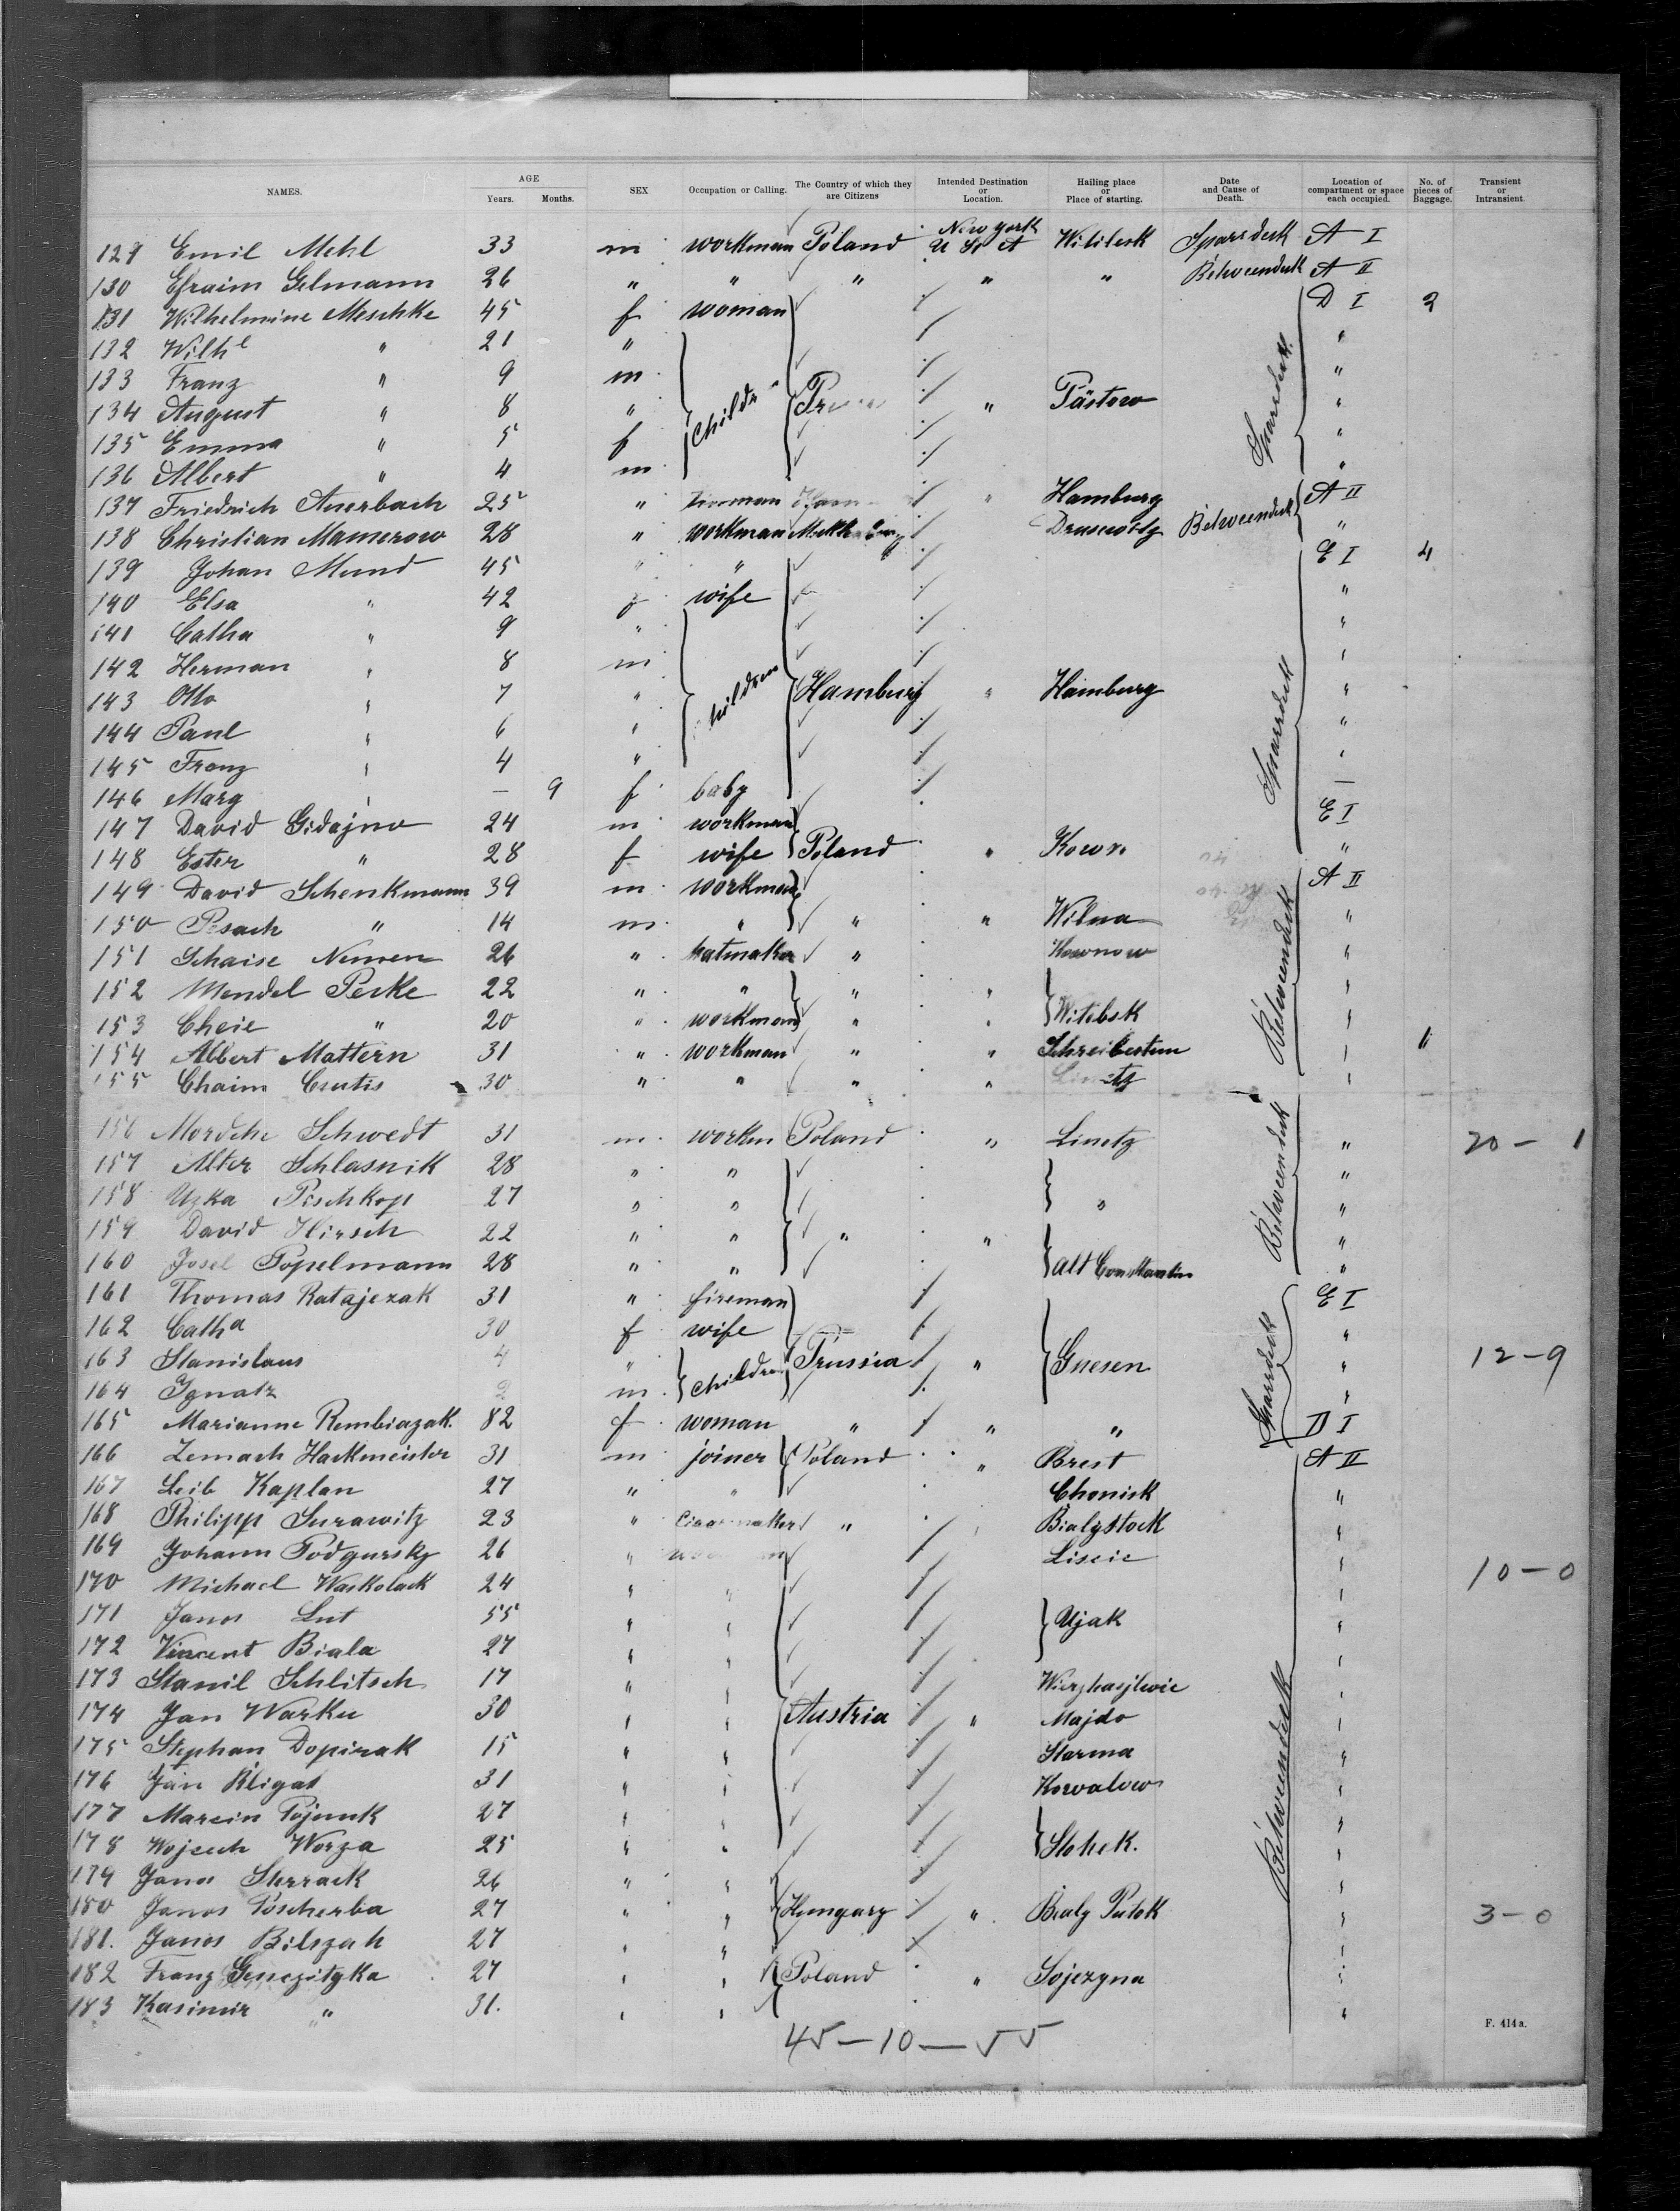 NAMES. AGE Years. Months. SEX Occupation or Calling. The Country of which they are Citizens Intended Destination or Location. Hailing place or Place of starting. Date and Cause of Death. Location of compartment or space each occupied. No. of pieces of Baggage. Transient or Intransient.
129 Emil Mehl 33 m workman Poland New york U St A Witibsk Sparsdeck A I
130 Efraim Gelmann 26 " " " " " Betweendeck A II
131 Wilhelmine Meschke 45 f woman D I 2
132 Wilhe " 21 " "
133 Franz " 9 m "
134 August " 8 " Childn " Pästow Sparrdeck "
135 Emma " 5 f "
136 Albert " 4 m "
137 Friedrich Auerbach 25 " " Hamburg A II
138 Christian Mamerow 28 " workman Betweendeck "
139 Johan Mund 45 " " E I 4
140 Elsa " 42 f wife "
141 Catha " 9 " "
142 Herman " 8 m "
143 Otto " 7 " children Hamburg " Hamburg Sparrdeck "
144 Paul " 6 " "
145 Franz " 4 " "
146 Marg " — 9 f baby —
147 David Gidajno 24 m workman E I
148 Ester " 28 f wife Poland " "
149 David Schenkmann 39 m workman A II
150 Pesach " 14 m " " " Wilna Betweendeck "
151 Schaise Nemen 26 " hatmaker " Kownow "
152 Mendel Perke 22 " " " " "
153 Cheie " 20 " workman " " Witibsk "
154 Albert Mattern 31 " workman " " " "
155 Chaim Crutis 30 " " " " "
156 Mordche Schwedt 31 m workm Poland " Linetz Betweendeck " 20 – 1
157 Alter Schlasnik 28 " " "
158 Uzka Peschkop 27 " " " "
159 David Hirsch 22 " " " " "
160 Josel Popelmann 28 " " Alt Constantin "
161 Thomas Ratajczak 31 " fireman E I
162 Catha 30 f wife "
163 Stanislaus 4 " Children Prussia " Gnesen Sparrdeck " 12 – 9
164 Ignatz 2 m "
165 Marianne Rembiazak. 82 f woman " " " D I
166 Zemach Hackmeister 31 m joiner Poland " Brest A II
167 Leib Kaplan 27 " " Chonisk "
168 Philipp Surawitz 23 " Cigarmaker " " Bialystock "
169 Johann Podgursky 26 " Liscie "
170 Michael Waskolack 24 " " " 10 – 0
171 Janos Lut 55 " " Ujak "
172 Vincent Biala 27 " " "
173 Stanil Schlitsch 17 " " "
174 Jan Warku 30 " " Austria " Majdo Betweendeck "
175 Stephan Dopirak 15 " " Starma "
176 Jan Kligat 31 " " Kowalow "
177 Marcin Pojunk 27 " " "
178 Wojcech Worza 25 " " Stohek. "
179 Janos Sterrack 26 " " "
180 Janos Poscherba 27 " " Hungary " Bialy Patok " 3 – 0
181. Janos Bilszah 27 " " "
182 Franz Genczitzka 27 " " Poland " Sojezyna "
183 Kasimir " 31. " " "
45 – 10 – 55
F. 414a.